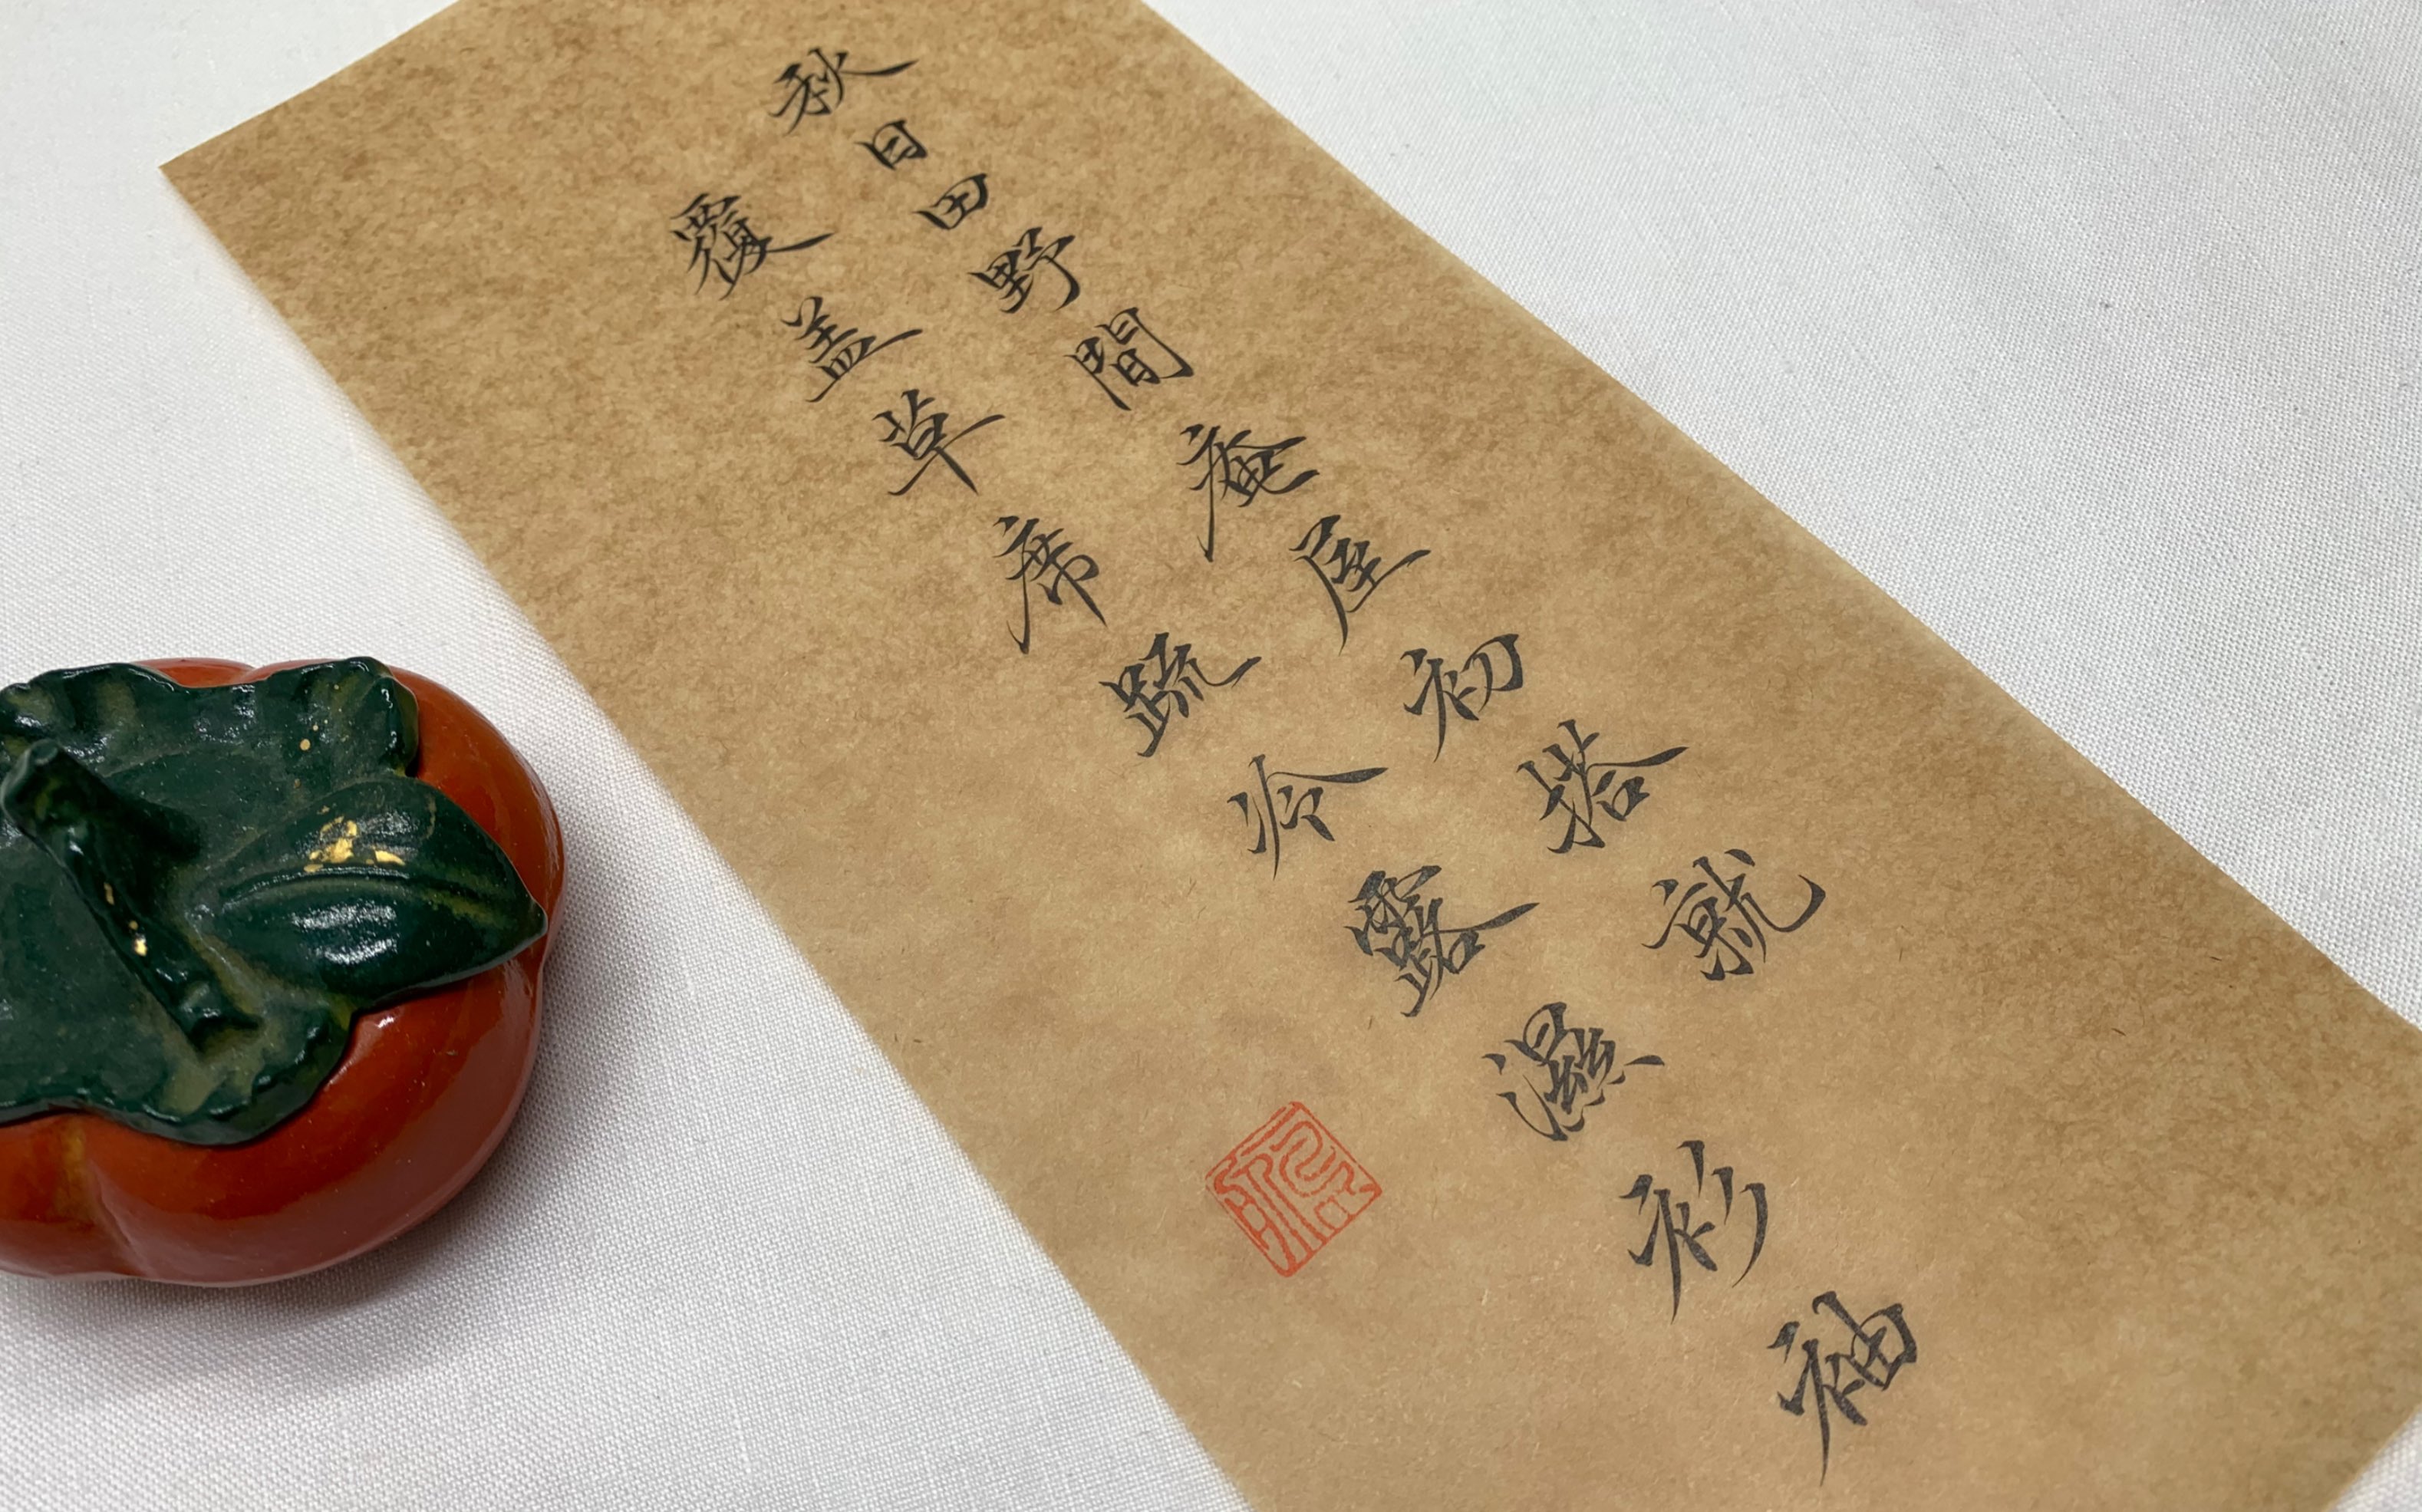 秋日田野間庵屋初搭就
覆盖草席䟽冷露濕衫袖